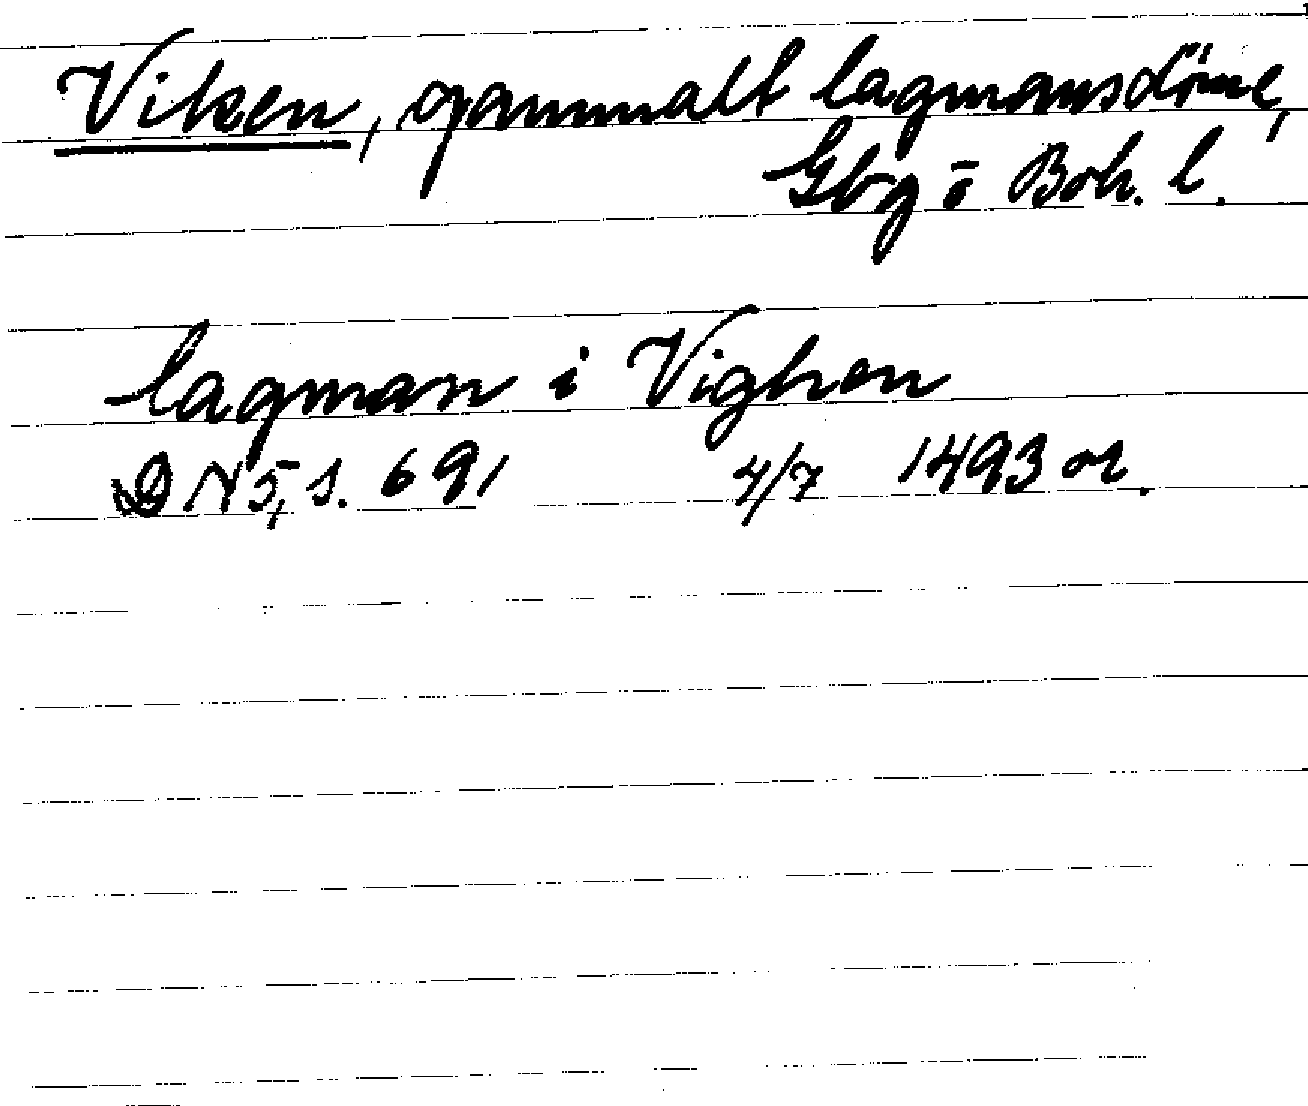 Viken, gammalt lagmansdöme,
Gbg o Boh. l.
lagman i Vighen
DN 5, s. 691 4/7 1493 or.